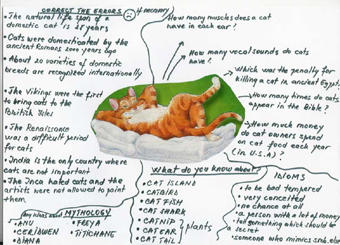 CORRECT THE ERRORS (if necessary)
• The natural life span of a
domestic cat is 25 years
• Cats were domesticated by the
ancient Romans 2000 years ago
• About 20 varieties of domestic
breeds are recognised internationally
• The Vikings were the first
to bring cats to the
British Isles
• The Renaissance
was a difficult period
for cats
• India is the only country where
cats are not important
• The Inca hated cats and the
artists were not allowed to paint
them
How many muscles does a cat
have in each ear?
How many vocal sounds do cats
have?
Which was the penalty for
killing a cat in ancient Egypt?
How many times do cats
appear in the Bible?
How much money
do cat owners spend
on cat food each year
(in U.S.A)?
What do you know about:
• CAT ISLAND
• CATBIRD
• CAT FISH
• CAT SHARK
• CATNIP
• CAT EAR
• CAT TAIL
plants
IDIOMS
• to be bad tempered
• very conceited
• no chance at all
• a person with a lot of money
• tell something which should be
a secret
• someone who mimics and
MYTHOLOGY
• FREYA
• CERIDWEN